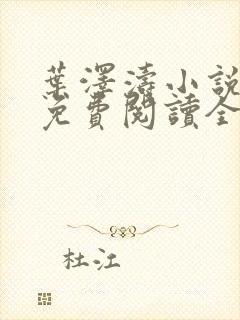 葉澤濤小說
免費閱讀全
杜江